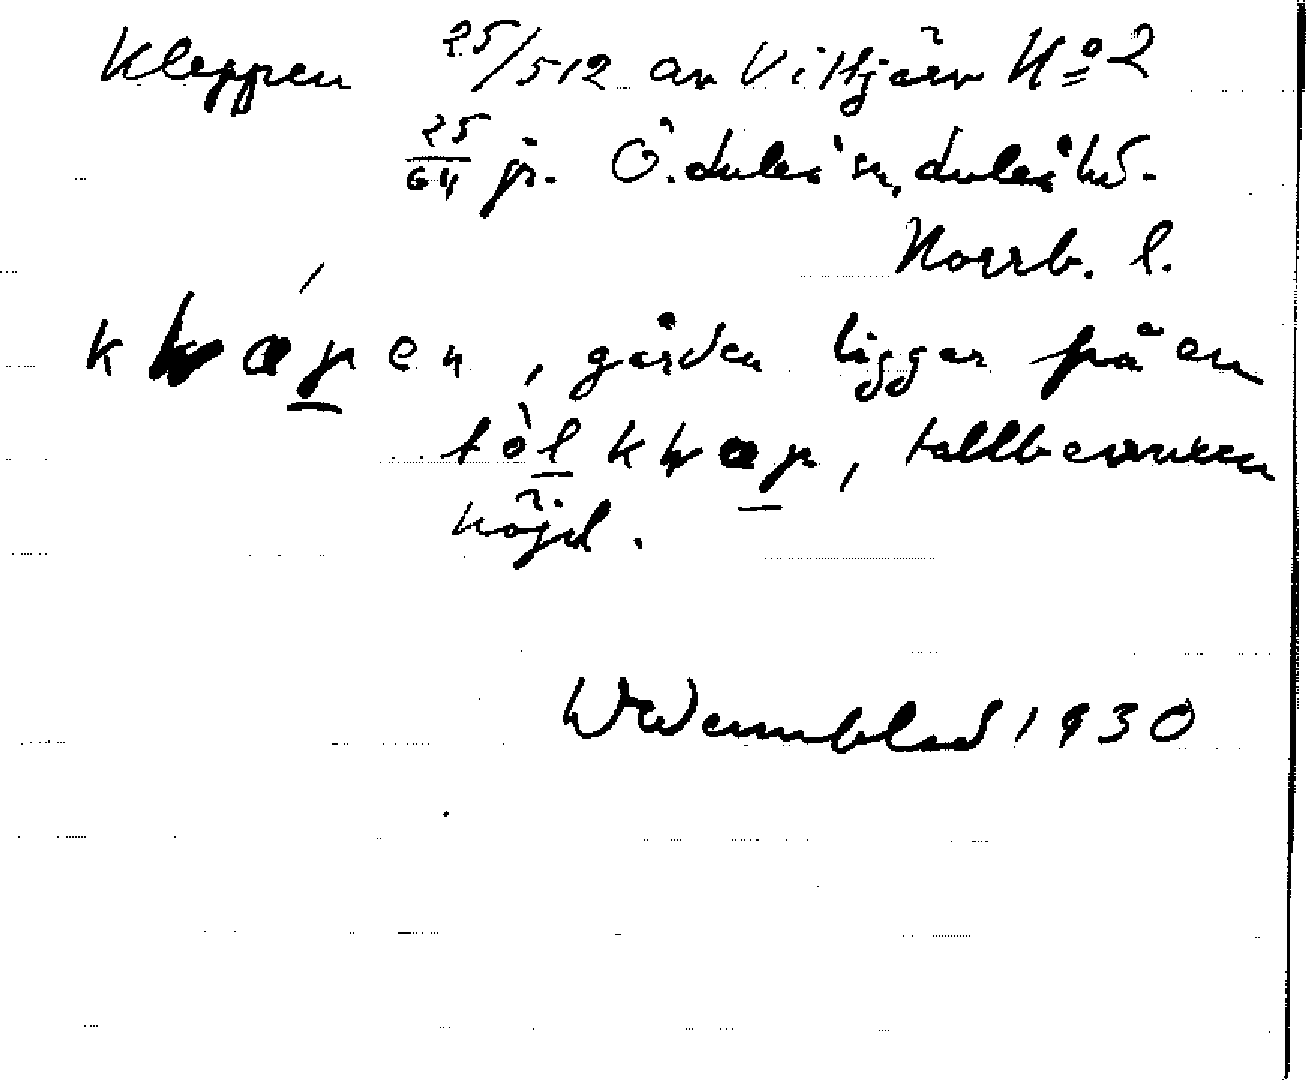 Kleppen 25/512 av Vittjärv No 2
25/64 jr. Ö. Luleå sn, Luleå hd.
Norrb. l.
gården ligger på en
tallbevuxen
höjd.
Wdennblad 1930